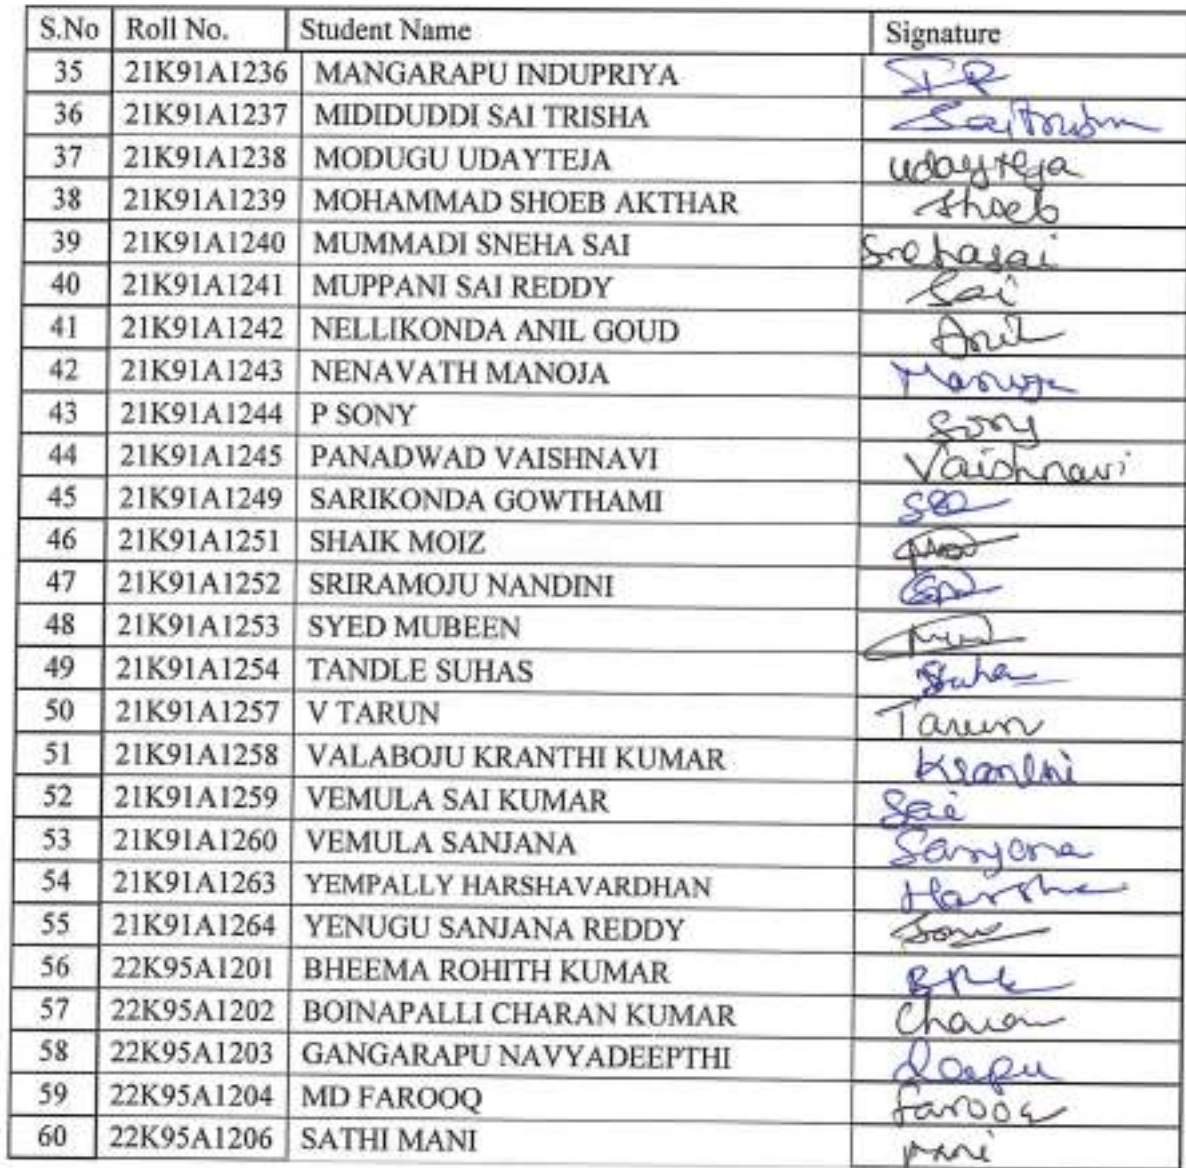 S.No Roll No. Student Name Signature
35 21K91A1236 MANGARAPU INDUPRIYA
36 21K91A1237 MIDIDUDDI SAI TRISHA Saitrisha
37 21K91A1238 MODUGU UDAYTEJA udayteja
38 21K91A1239 MOHAMMAD SHOEB AKTHAR Shoeb
39 21K91A1240 MUMMADI SNEHA SAI Snehasai
40 21K91A1241 MUPPANI SAI REDDY Sai
41 21K91A1242 NELLIKONDA ANIL GOUD Anil
42 21K91A1243 NENAVATH MANOJA Manoja
43 21K91A1244 P SONY Sony
44 21K91A1245 PANADWAD VAISHNAVI Vaishnavi
45 21K91A1249 SARIKONDA GOWTHAMI
46 21K91A1251 SHAIK MOIZ
47 21K91A1252 SRIRAMOJU NANDINI
48 21K91A1253 SYED MUBEEN
49 21K91A1254 TANDLE SUHAS Suhas
50 21K91A1257 V TARUN Tarun
51 21K91A1258 VALABOJU KRANTHI KUMAR Kranthi
52 21K91A1259 VEMULA SAI KUMAR Sai
53 21K91A1260 VEMULA SANJANA Sanjana
54 21K91A1263 YEMPALLY HARSHAVARDHAN Harsha
55 21K91A1264 YENUGU SANJANA REDDY
56 22K95A1201 BHEEMA ROHITH KUMAR
57 22K95A1202 BOINAPALLI CHARAN KUMAR Charan
58 22K95A1203 GANGARAPU NAVYADEEPTHI
59 22K95A1204 MD FAROOQ farooq
60 22K95A1206 SATHI MANI mani